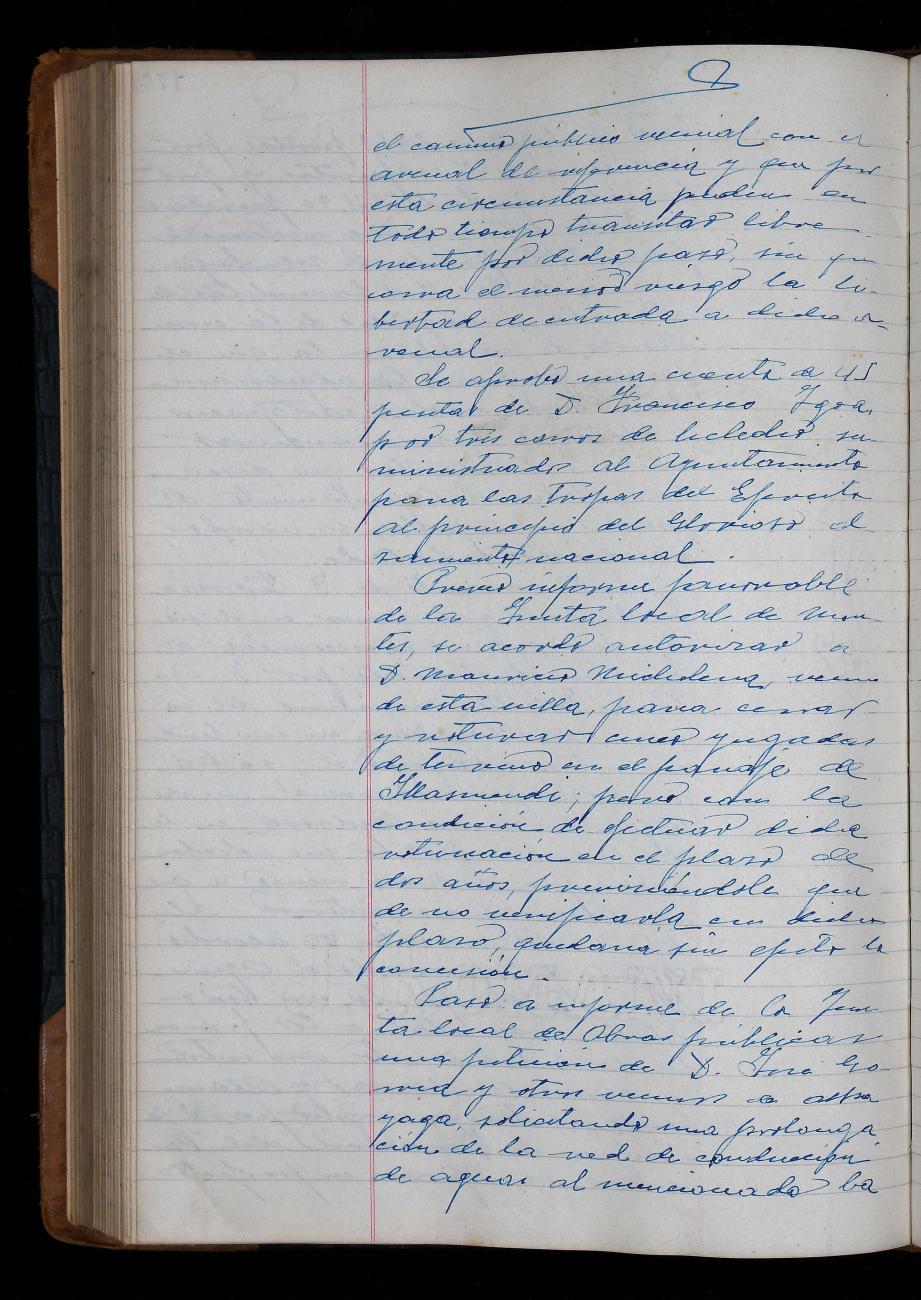 el camino público vecinal con el
arenal de referencia y que por
esta circunstancia pueden en
todo tiempo transitar libre
mente por dicho paso, sin que
corra el menor riesgo la li-
bertad de entrada a dicho a-
renal.
Se aprobó una cuenta de 45
pesetas de D. Francisco Igoa,
por tres carros de helecho su
ministrados al Ayuntamiento
para las tropas del Ejército
al principio del Glorioso al
zamiento nacional.
Previo informe favorable
de la Junta local de Mon-
tes, se acordó autorizar a
D. Mauricio Michelena, vecino
de esta villa, para cerrar
y roturar cinco yugadas
de terreno en el paraje de
; pero con la
condición de efectuar dicha
roturación en el plazo de
dos años, previniéndole que
de no verificarla en dicho
plazo, quedaría sin efecto la
concesión.
Pasó a informe de la Jun
ta local de Obras públicas
una petición de D. José
y otros vecinos de
solicitando una prolonga
ción de la red de conducción
de aguas al mencionado ba